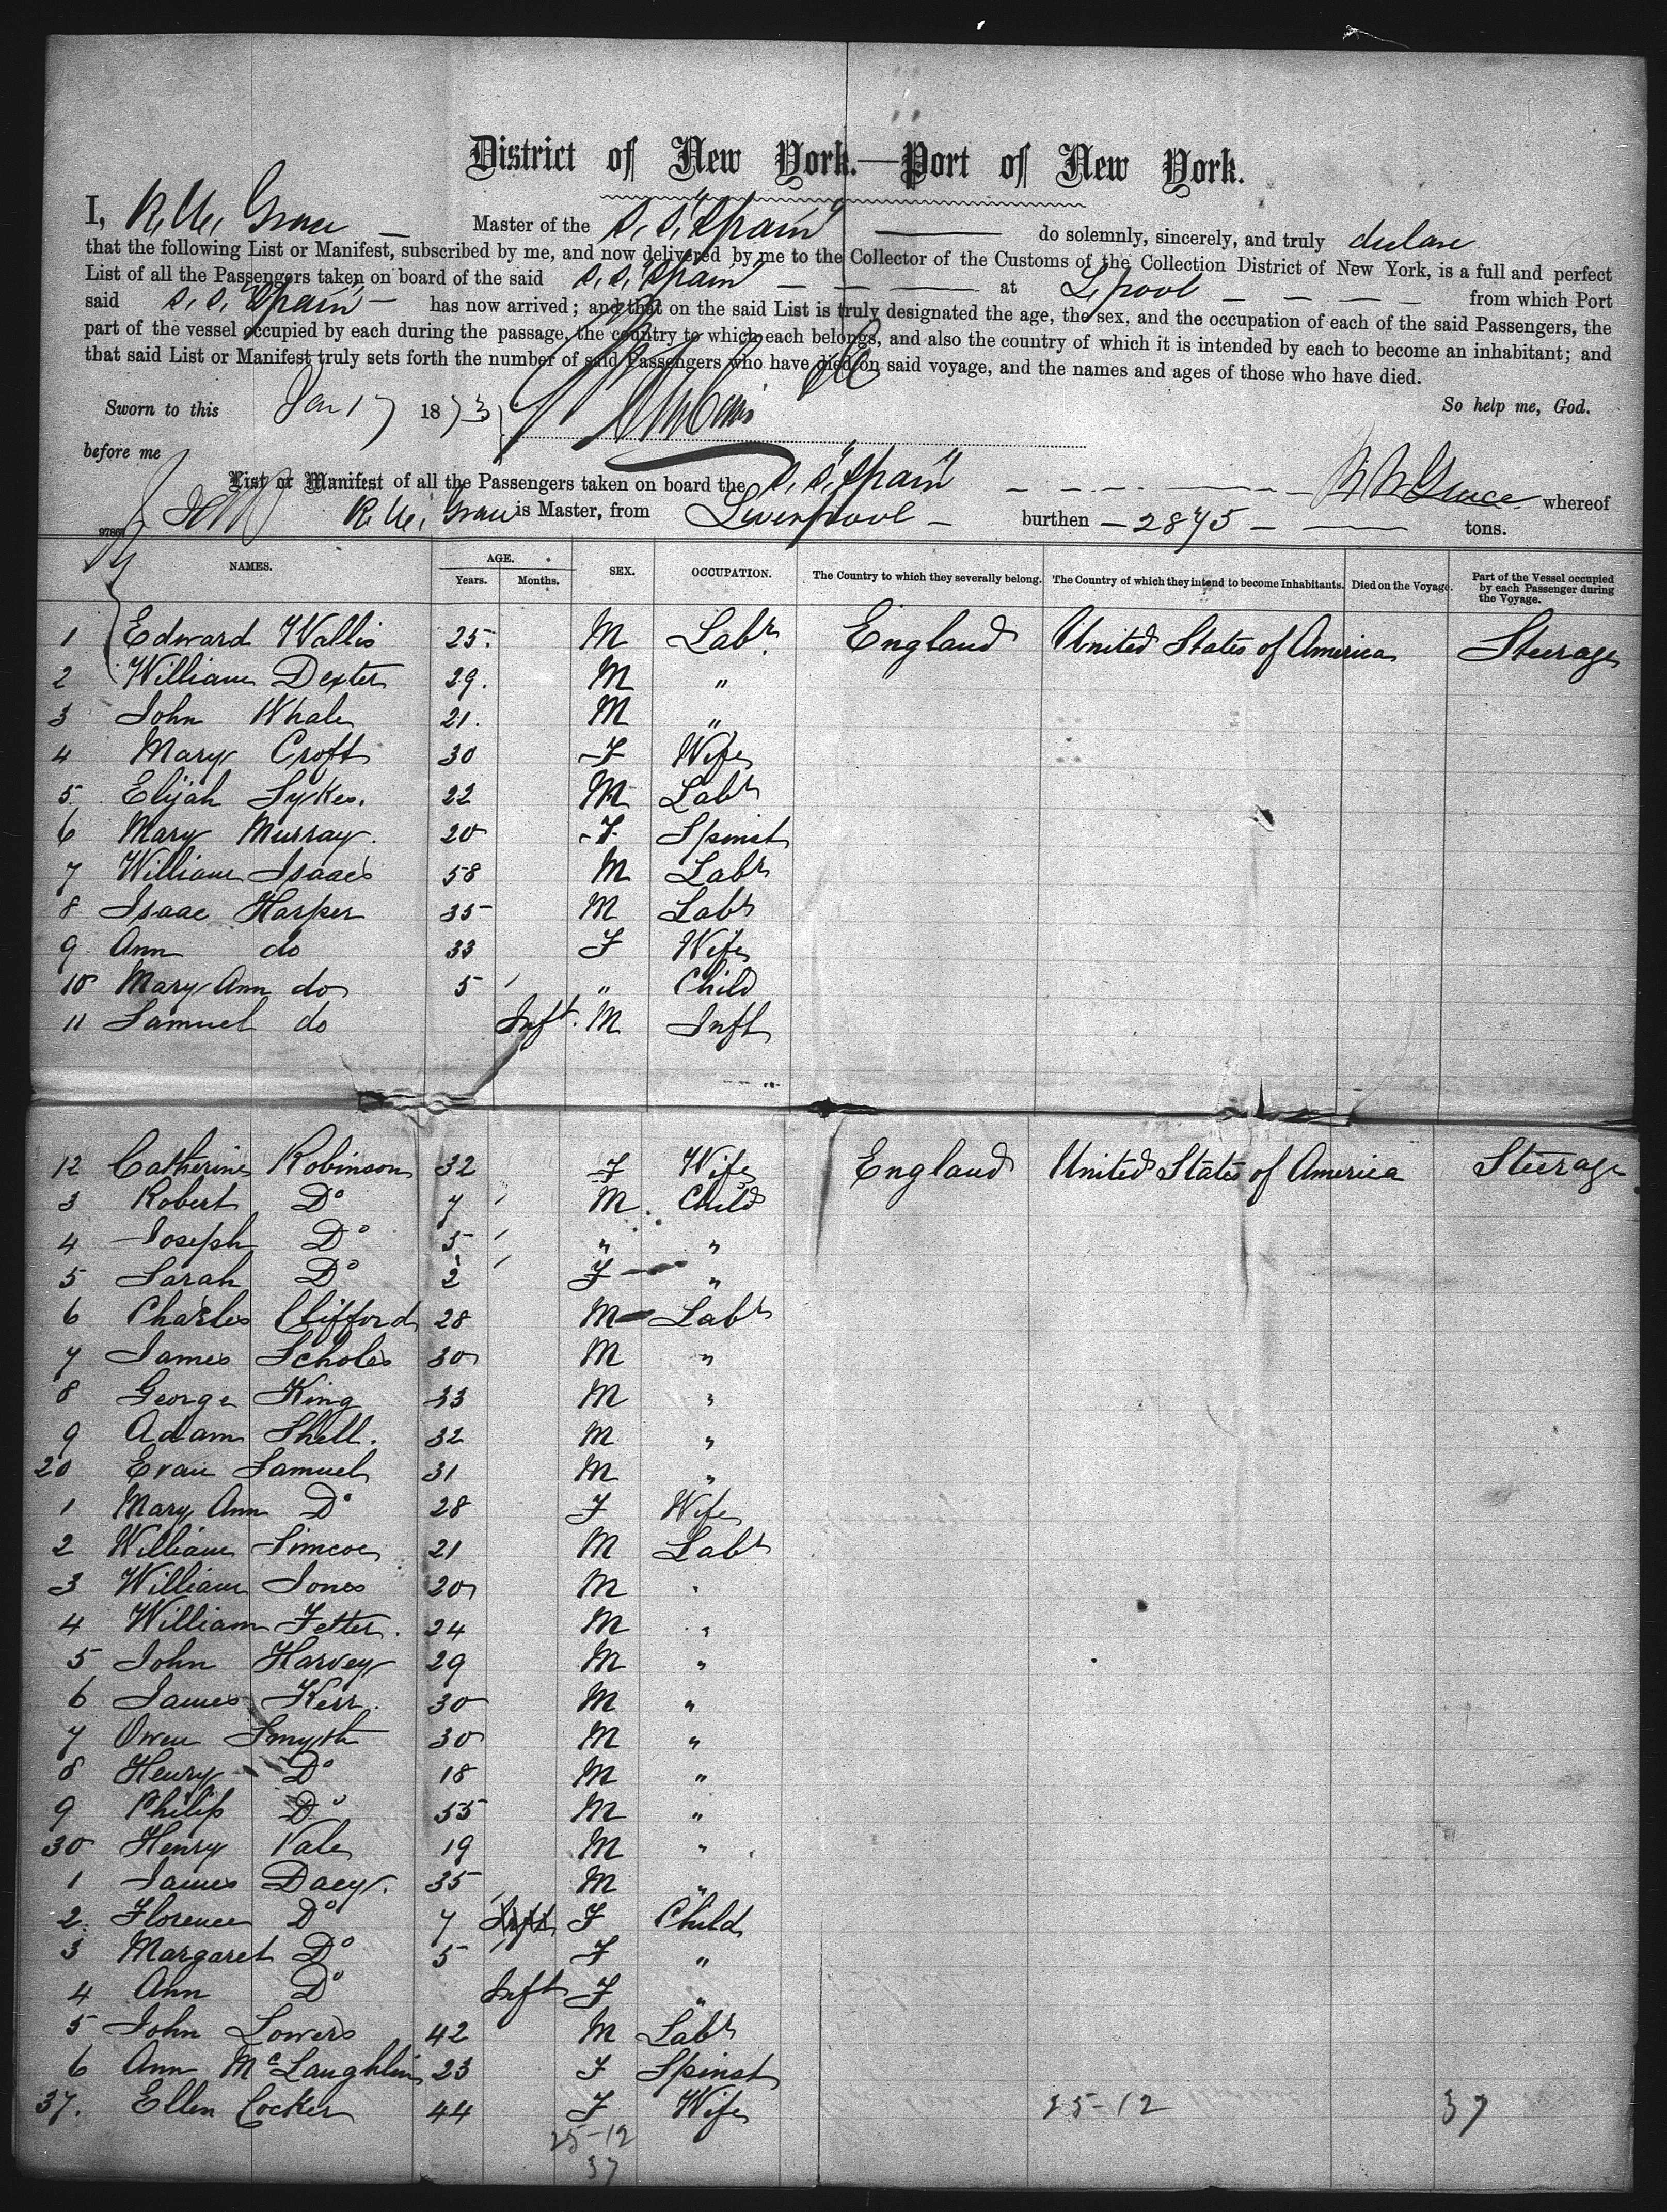 District of New York.—Port of New York.
I, R. W. Grace — Master of the S. S. "Spain" — do solemnly, sincerely, and truly declare
that the following List or Manifest, subscribed by me, and now delivered by me to the Collector of the Customs of the Collection District of New York, is a full and perfect
List of all the Passengers taken on board of the said S. S. "Spain" — — — at L'pool — — — — from which Port
said S. S. "Spain" — has now arrived; and that on the said List is truly designated the age, the sex, and the occupation of each of the said Passengers, the
part of the vessel occupied by each during the passage, the country to which each belongs, and also the country of which it is intended by each to become an inhabitant; and
that said List or Manifest truly sets forth the number of said Passengers who have died on said voyage, and the names and ages of those who have died.
So help me, God.
Sworn to this Jan 17 1873
before me
List or Manifest of all the Passengers taken on board the S. S. "Spain" — — — — R W Grace whereof
R. W. Grace is Master, from Liverpool — burthen — 2875 — — tons.
NAMES. AGE. Years. Months. SEX. OCCUPATION. The Country to which they severally belong. The Country of which they intend to become Inhabitants. Died on the Voyage. Part of the Vessel occupied by each Passenger during the Voyage.
1 Edward Wallis 25. M Labr. England United States of America Steerage
2 William Dexter 29. M "
3 John Whale 21. M "
4 Mary Croft 30 F Wife
5 Elijah Sykes. 22 M Labr
6 Mary Murray. 20 F Spinst
7 William Isaacs 58 M Labr
8 Isaac Harper 35 M Labr
9 Ann do 33 F Wife
10 Mary Ann do 5 " Child
11 Samuel do Inft. M Inft
12 Catherine Robinson 32 F Wife England United States of America Steerage
3 Robert Do 7 M. Child
4 Joseph Do 5 " "
5 Sarah Do 2 F "
6 Charles Clifford 28 M Labr
7 James Scholes 30 M "
8 George King 33 M "
9 Adam Shell. 32 M "
20 Evan Samuel 31 M "
1 Mary Ann Do 28 F Wife
2 William Simcoe 21 M Labr
3 William Jones 20 M "
4 William Fetter. 24 M "
5 John Harvey 29 M "
6 James Kerr. 30 M "
7 Owen Smyth 30 M "
8 Henry Do 18 M "
9 Philip Do 55 M "
30 Henry Vale 19 M "
1 James Dacy. 35 M "
2. Florence Do 7 Inft F Child
3 Margaret Do 5 F "
4 Ann Do Inft F "
5 John Lowers 42 M Labr
6 Ann McLaughlin 23 F Spinst
37. Ellen Cocker 44 F Wife 25-12 37
25-12
37